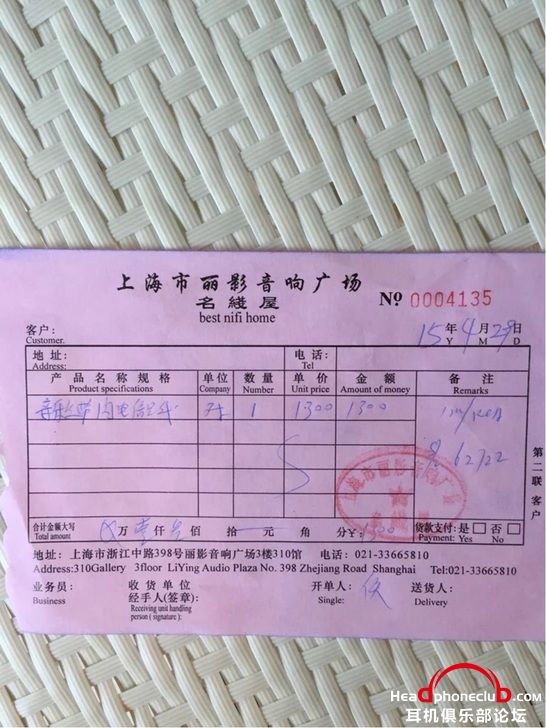 上海市丽影音响广场
名綫屋
best nifi home
№ 0004135
客户:
Customer.
15 年 4 月 29 日
Y M D
地址:
Address:
电话:
Tel
产品名称规格 单位 数量 单价 金额 备注
Product specifications Company Number Unit price Amount of money Remarks
1 1300 1300
62122
第二联 客户
上海市丽影音响广场
合计金额大写
Total amount
万 壹 仟 佰 拾 元 角 分 Y:
货款支付:是 否
Payment: Yes No
地址: 上海市浙江中路398号丽影音响广场3楼310馆 电话: 021-33665810
Address:310Gallery 3floor LiYing Audio Plaza No. 398 Zhejiang Road Shanghai Tel:021-33665810
业务员: 收货单位 开单人: 送货人:
Business 经手人(签章): Single: Delivery
Receiving unit handling
person ( signature ):
HeadphoneclubD.com
耳机俱乐部论坛